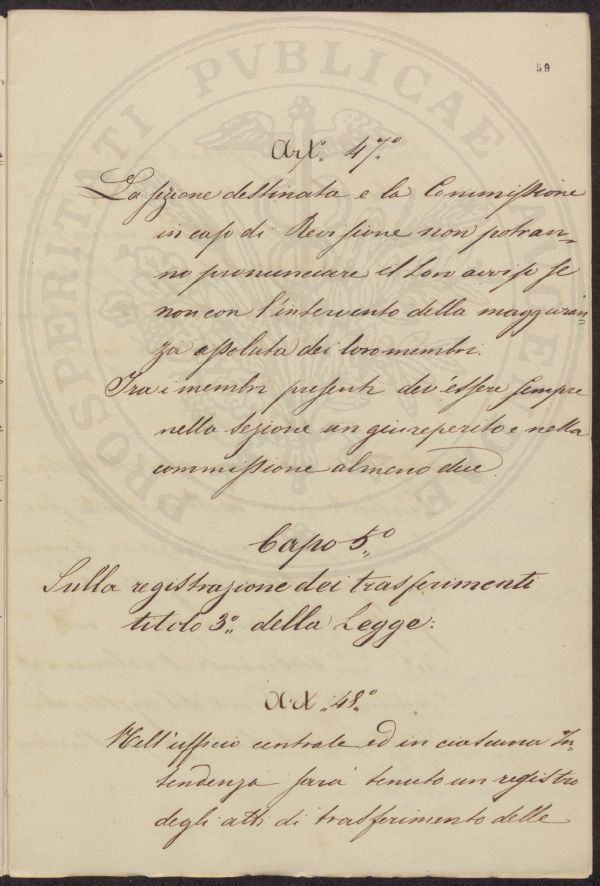 59
Art.° 47.°
La sezione destinata e la Commissione
in caso di Revisione non potran=
no pronunciare il loro avviso se
non con l'intervento della maggioran=
za assoluta dei loro membri.
Tra i membri presenti dev'essere sempre
nella sezione un giureperito e nella
commissione almeno due.
Capo 5.°
Sulla registrazione dei trasferimenti
titolo 3.° della Legge:
Art. 48.°
Nell'ufficio centrale ed in ciascuna In=
tendenza sarà tenuto un registro
degli atti di trasferimento delle
PROSPERITATI PVBLICAE